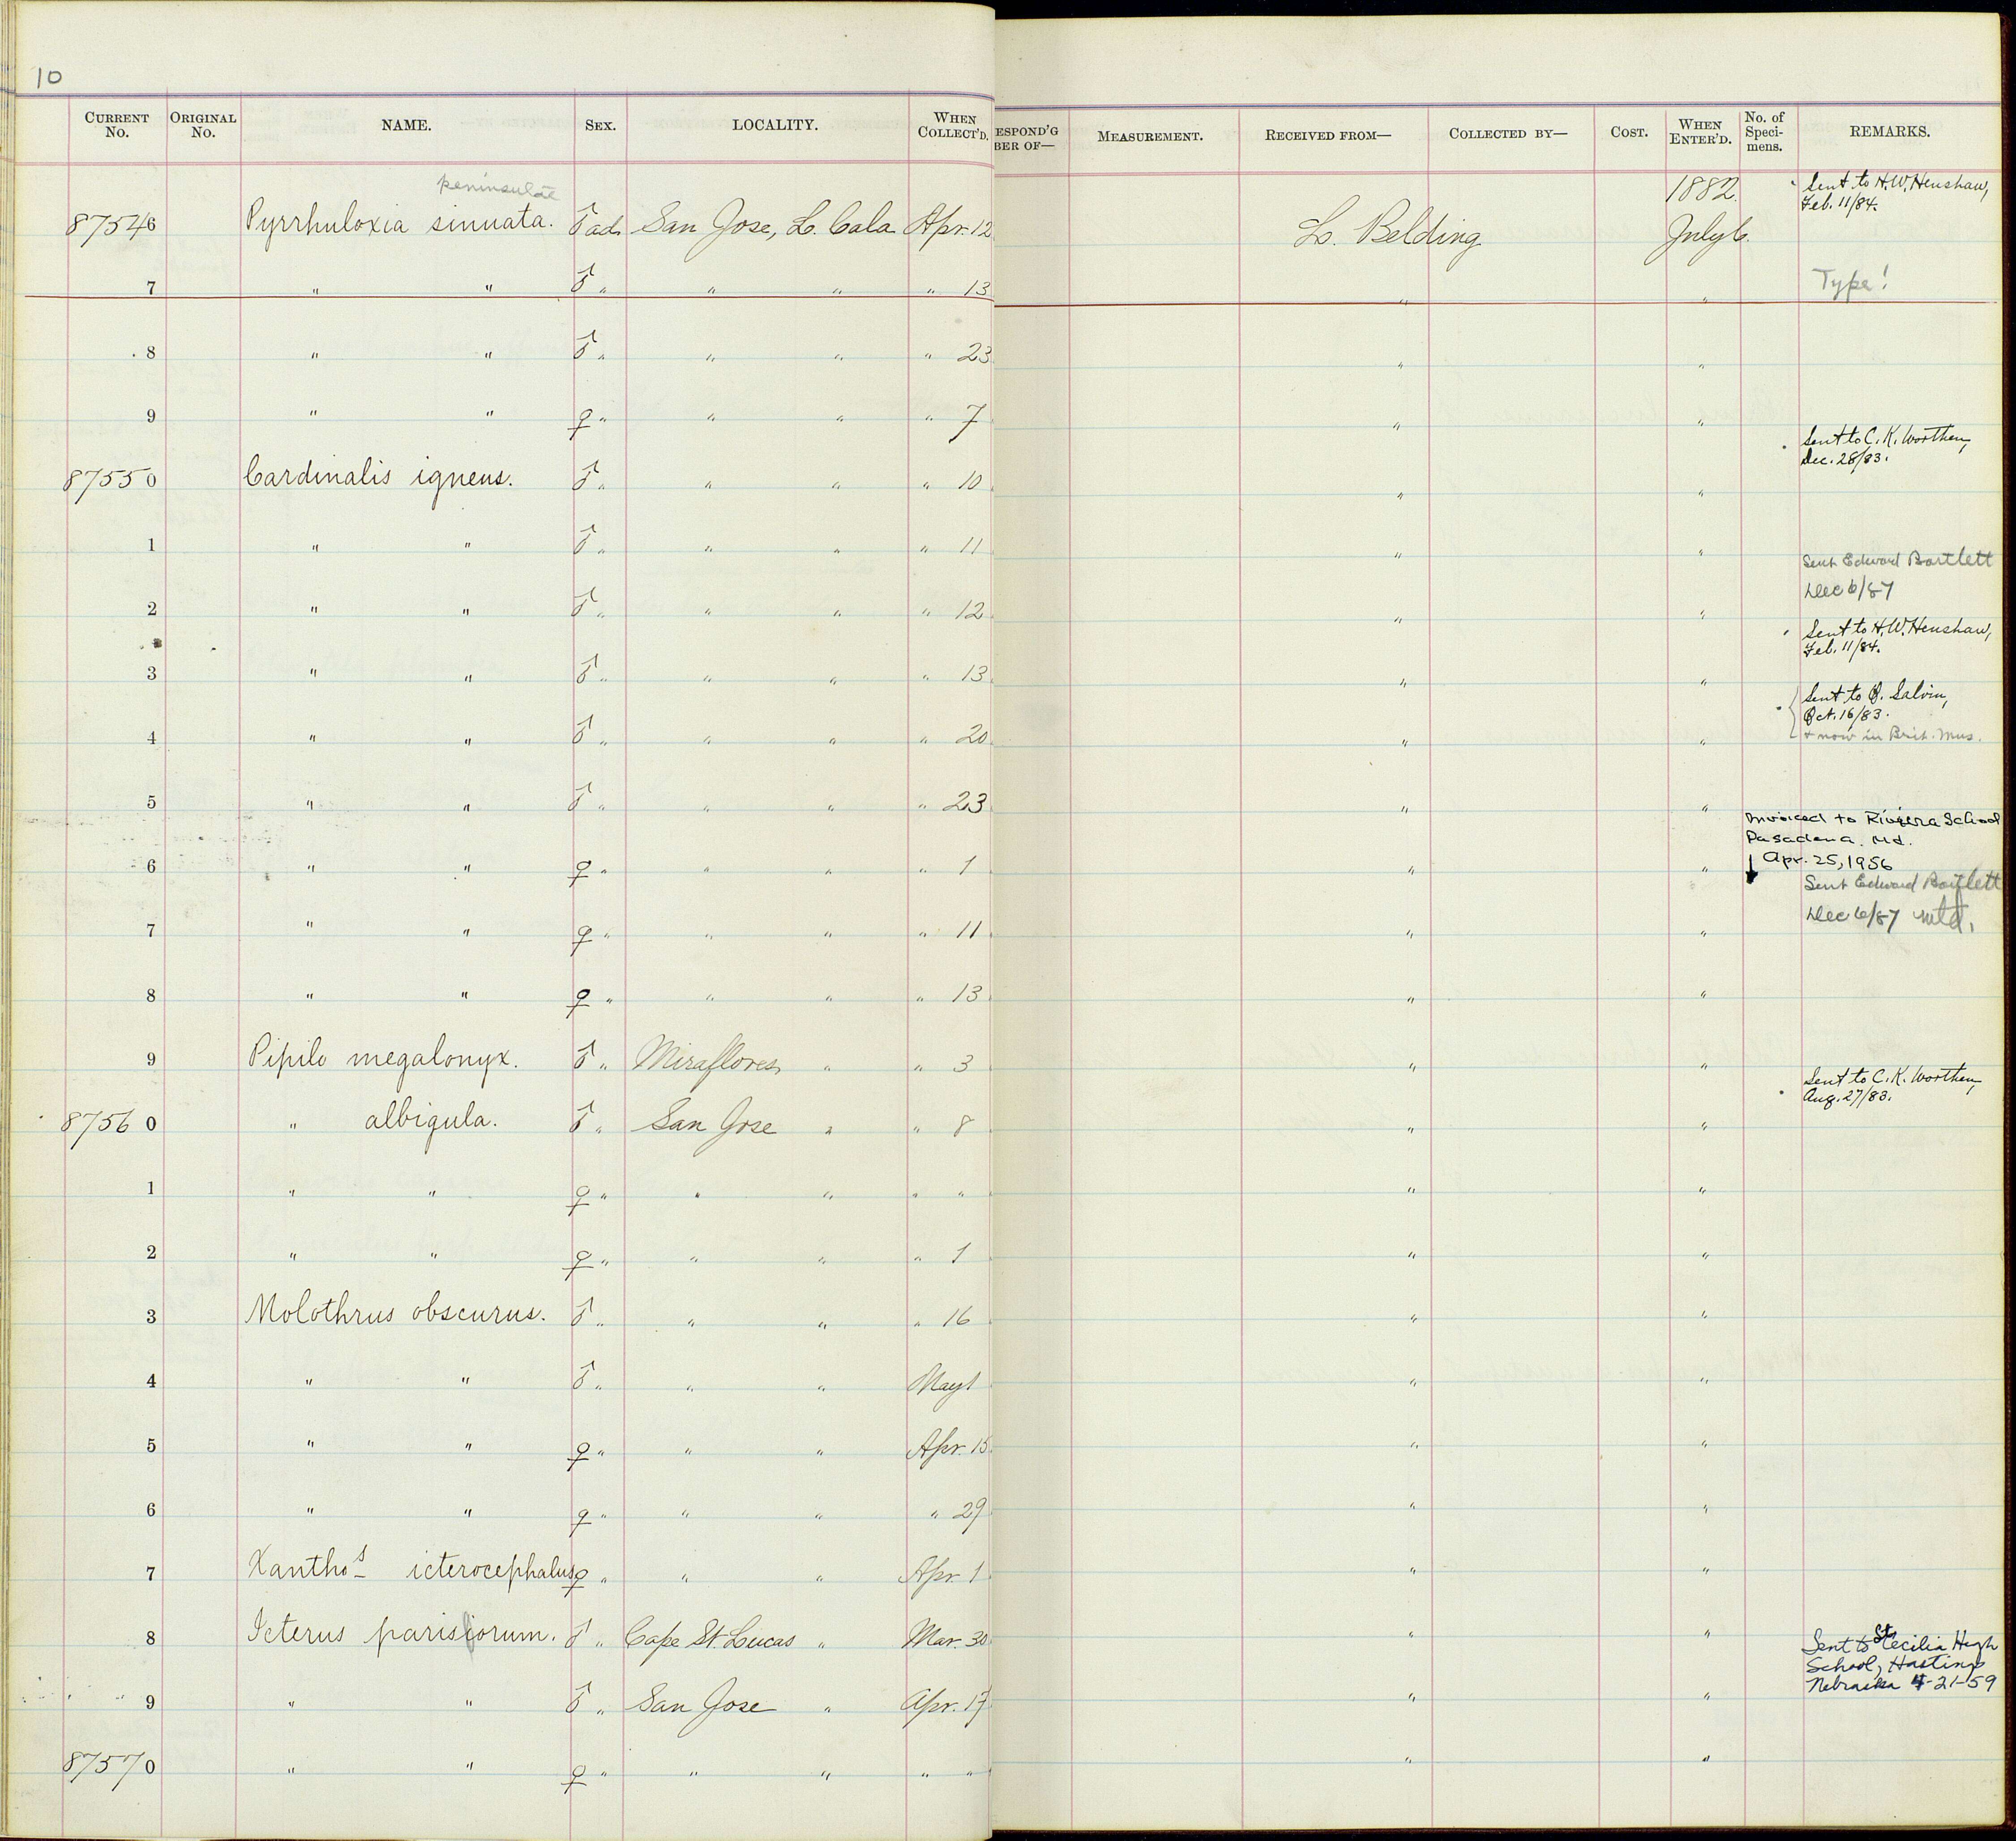 10
CURRENT No. ORIGINAL No. NAME. SEX. LOCALITY. WHEN COLLECT'D. ESPOND'G BER OF— MEASUREMENT. RECEIVED FROM— COLLECTED BY— COST. WHEN ENTER'D. No. of Speci- mens. REMARKS.
peninsulae 1882. Sent to H. W. Henshaw, Feb. 11/84.
87546 Pyrrhuloxia sinuata. ♂ ad. San Jose, L. Cala Apr. 12 L. Belding July 6.
7 " " ♂ " " " " 13 " " Type!
8 " " ♂ " " " " 23 " "
9 " " ♀ " " " " 7 " "
Sent to C. K. Worthen, Dec. 28/83.
87550 Cardinalis igneus. ♂ " " " " 10 " "
1 " " ♂ " " " " 11 " "
Sent Edward Bartlett Dec 6/87
2 " " ♂ " " " " 12 " "
Sent to H. W. Henshaw, Feb. 11/84.
3 " " ♂ " " " " 13 " "
Sent to O. Salvin, Oct. 16/83.
4 " " ♂ " " " " 20 " " + now in Brit. Mus.
5 " " ♂ " " " " 23 " "
Invoiced to Riviera School
Pasadena. Md.
Apr. 25, 1956
6 " " ♀ " " " " 1 " "
Sent Edward Bartlett
Dec 6/87 mtd.
7 " " ♀ " " " " 11 " "
8 " " ♀ " " " " 13 " "
9 Pipilo megalonyx. ♂ " Miraflores " " 3 " "
Sent to C. K. Worthen, Aug. 27/83.
87560 " albigula. ♂ " San Jose " " 8 " "
1 " " ♀ " " " " " " "
2 " " ♀ " " " " 1 " "
3 Molothrus obscurus. ♂ " " " " 16 " "
4 " " ♂ " " " May 1 " "
5 " " ♀ " " " Apr. 15 " "
6 " " ♀ " " " " 29 " "
7 Xanthos icterocephalus ♀ " " " Apr. 1 " "
8 Icterus parisiorum. ♂ " Cape St. Lucas " Mar. 30 " "
Sent to St Cecilia High
School, Hastings
Nebraska 4-21-59
9 " " ♂ " San Jose " Apr. 17 " "
87570 " " ♀ " " " " " " "